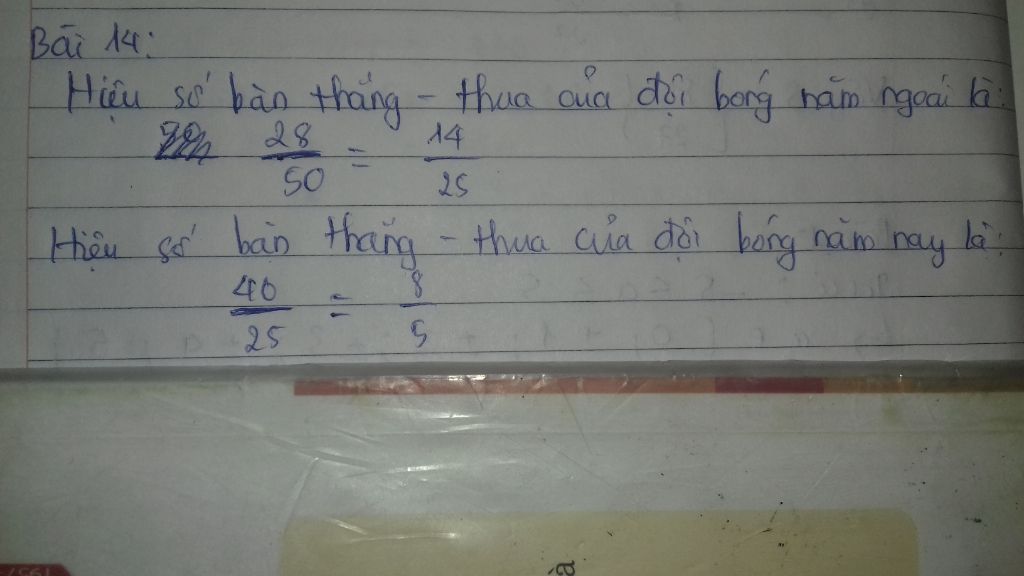 Bài 14:
Hiệu số bàn thắng - thua của đội bóng năm ngoái là:
28/50 = 14/25
Hiệu số bàn thắng - thua của đội bóng năm nay là:
40/25 = 8/5
à